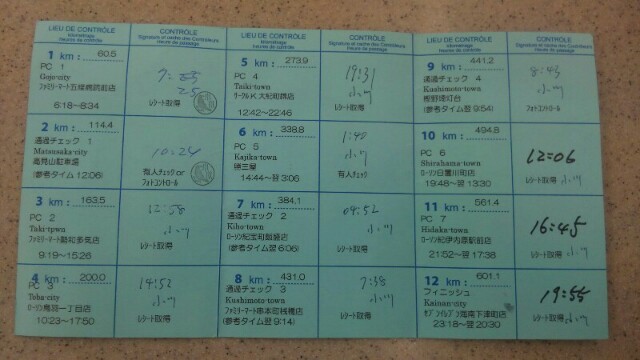 LIEU DE CONTRÔLE
kilométrage
heures de contrôle
CONTRÔLE
Signature et cachet des Contrôleurs
Heure de passage
1 km : 60.5
PC 1
Gojo-city
ファミリーマート五條
6:18~8:34
7:
25
レシート取得
2 km : 114.4
通過チェック 1
Matsusaka-city
高見山駐車場
(参考タイム 12:06)
10:24
有人チェック or
フォトコントロール
3 km : 163.5
PC 2
Taki-town
ファミリーマート勢和多気店
9:19~15:26
12:58
小川
レシート取得
4 km : 200.0
PC 3
Toba-city
ローソン鳥羽一丁目店
10:23~17:50
14:52
小川
レシート取得
LIEU DE CONTRÔLE
kilométrage
heures de contrôle
CONTRÔLE
Signature et cachet des Contrôleurs
Heure de passage
5 km : 273.9
PC 4
Taiki-town
サークルK大紀町店
12:42~22:46
19:31
小川
レシート取得
6 km : 338.8
PC 5
Kajika-town
14:44~翌 3:06
1:48
小川
有人チェック
7 km : 384.1
通過チェック 2
Kiho-town
ローソン紀宝町鵜殿店
(参考タイム翌 6:06)
04:52
小川
レシート取得
8 km : 431.0
通過チェック 3
Kushimoto-town
ファミリーマート串本町桟橋店
(参考タイム翌 9:14)
7:38
小川
レシート取得
LIEU DE CONTRÔLE
kilométrage
heures de contrôle
CONTRÔLE
Signature et cachet des Contrôleurs
Heure de passage
9 km : 441.2
通過チェック 4
Kushimoto-town
樫野埼灯台
(参考タイム翌 9:54)
8:43
小川
フォトコントロール
10 km : 494.8
PC 6
Shirahama-town
ローソン日置川町店
19:48~翌 13:30
12:06
レシート取得 小川
11 km : 561.4
PC 7
Hidaka-town
ローソン紀伊内原駅前店
21:52~翌 17:38
16:45
レシート取得 小川
12 km : 601.1
フィニッシュ
Kainan-city
セブンイレブン海南下津町店
23:18~翌 20:30
19:55
レシート取得 小川